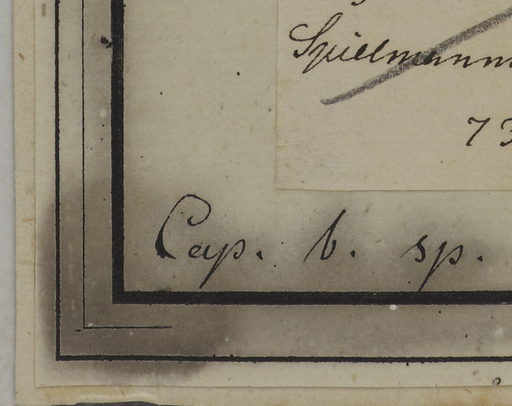 Spillmann
73
Cap. b. sp.